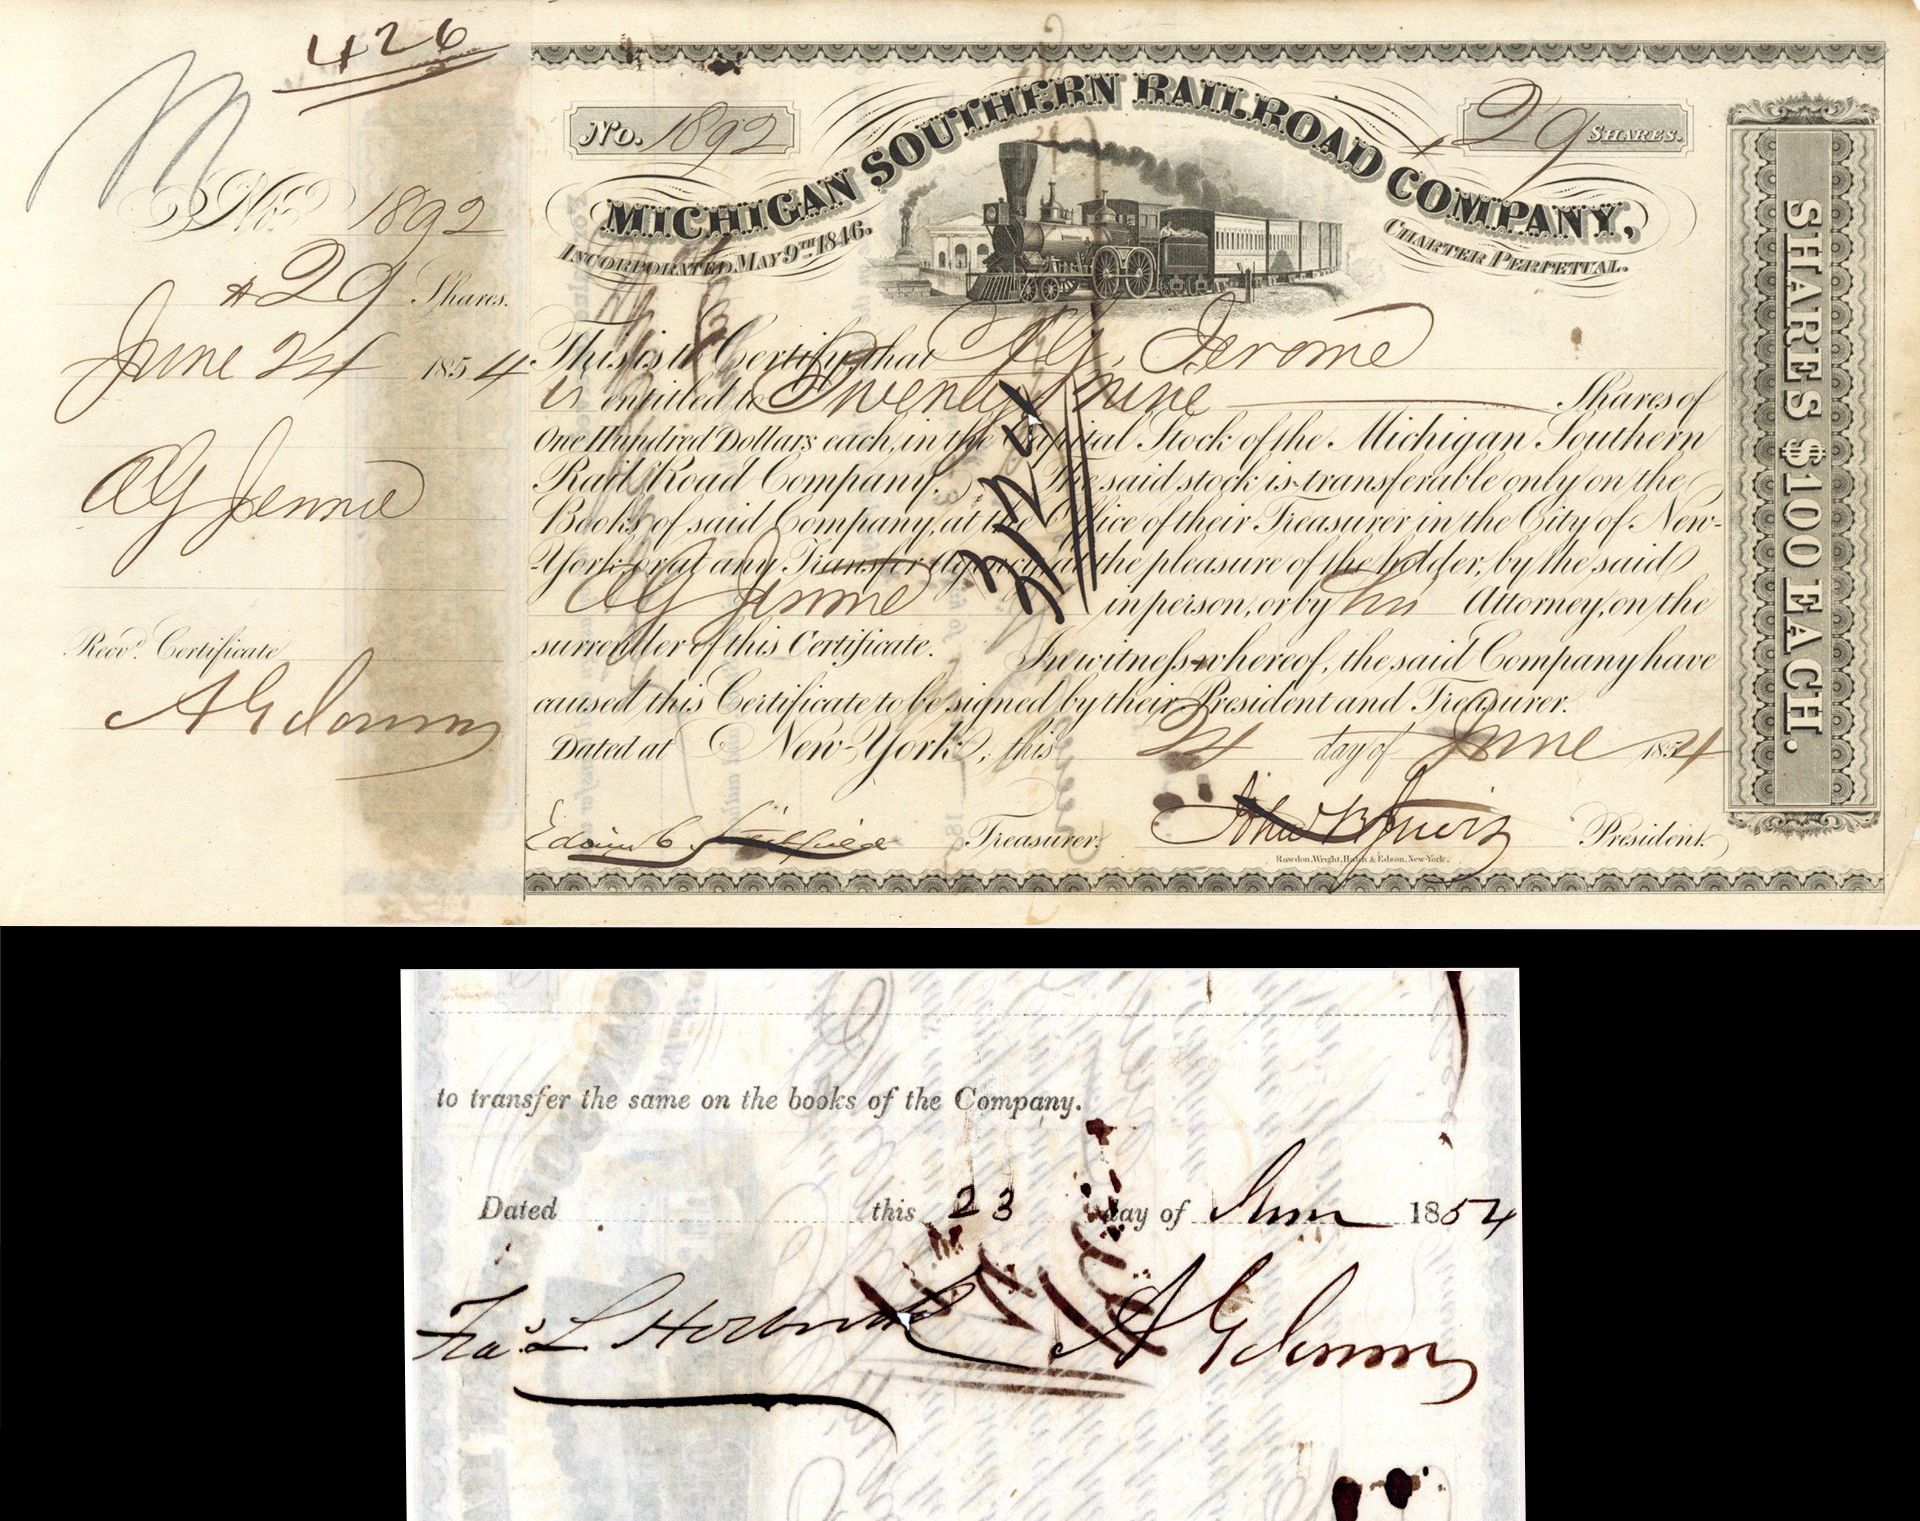 426
M
No. 1892
29 Shares.
June 24 1854
AG Jerome
Recvd. Certificate
A G Jerome
No. 1892
29 SHARES.
MICHIGAN SOUTHERN RAILROAD COMPANY,
INCORPORATED MAY 9TH 1846.
CHARTER PERPETUAL.
This is to Certify that A G. Jerome
is entitled to Twenty nine Shares of
One Hundred Dollars each, in the Capital Stock of the Michigan Southern
Rail Road Company. The said stock is transferable only on the
Books of said Company, at the Office of their Treasurer in the City of New-
York or at any Transfer Agency at the pleasure of the holder, by the said
AG Jerome in person, or by his Attorney, on the
surrender of this Certificate. In witness whereof, the said Company have
caused this Certificate to be signed by their President and Treasurer.
Dated at New-York, this 24 day of June 1854
Edwin C. Litchfield Treasurer. John B Jervis President.
Rawdon, Wright, Hatch & Edson, New-York.
SHARES $100 EACH.
to transfer the same on the books of the Company.
Dated this 23 day of June 1854
A G Jerome